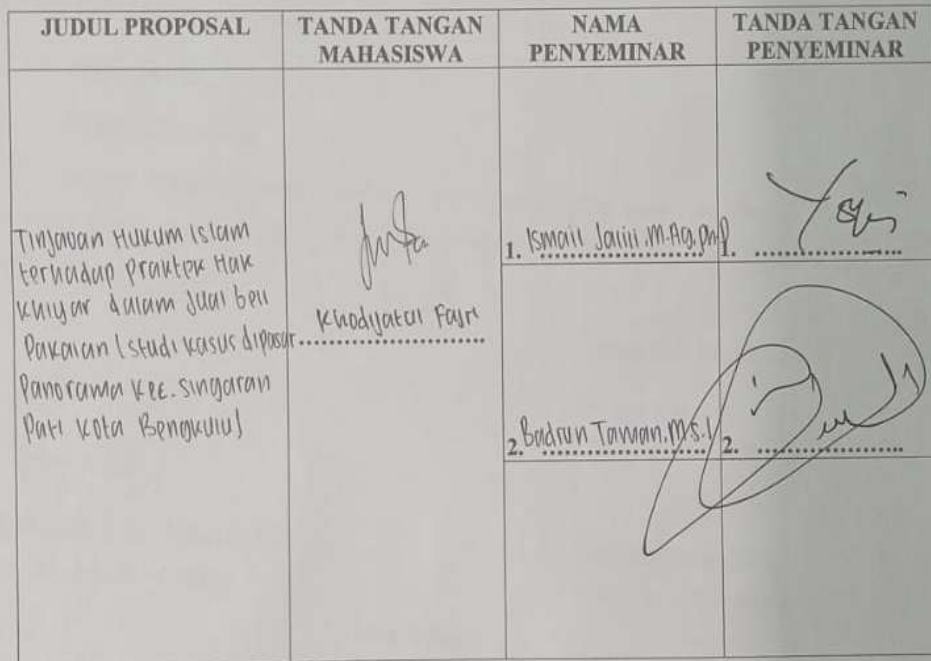 JUDUL PROPOSAL
TANDA TANGAN
MAHASISWA
NAMA
PENYEMINAR
TANDA TANGAN
PENYEMINAR
Tinjauan Hukum Islam
terhadap praktek Hak
Khiyar dalam Jual beli
Pakaian (studi kasus dipasar
Panorama Kec. Singaran
Pati Kota Bengkulu)
Khodijatul Fajri
1. Ismail Jalili, M.Ag, Ph.D
1.
2. Badrun Taman, M.S.I
2.